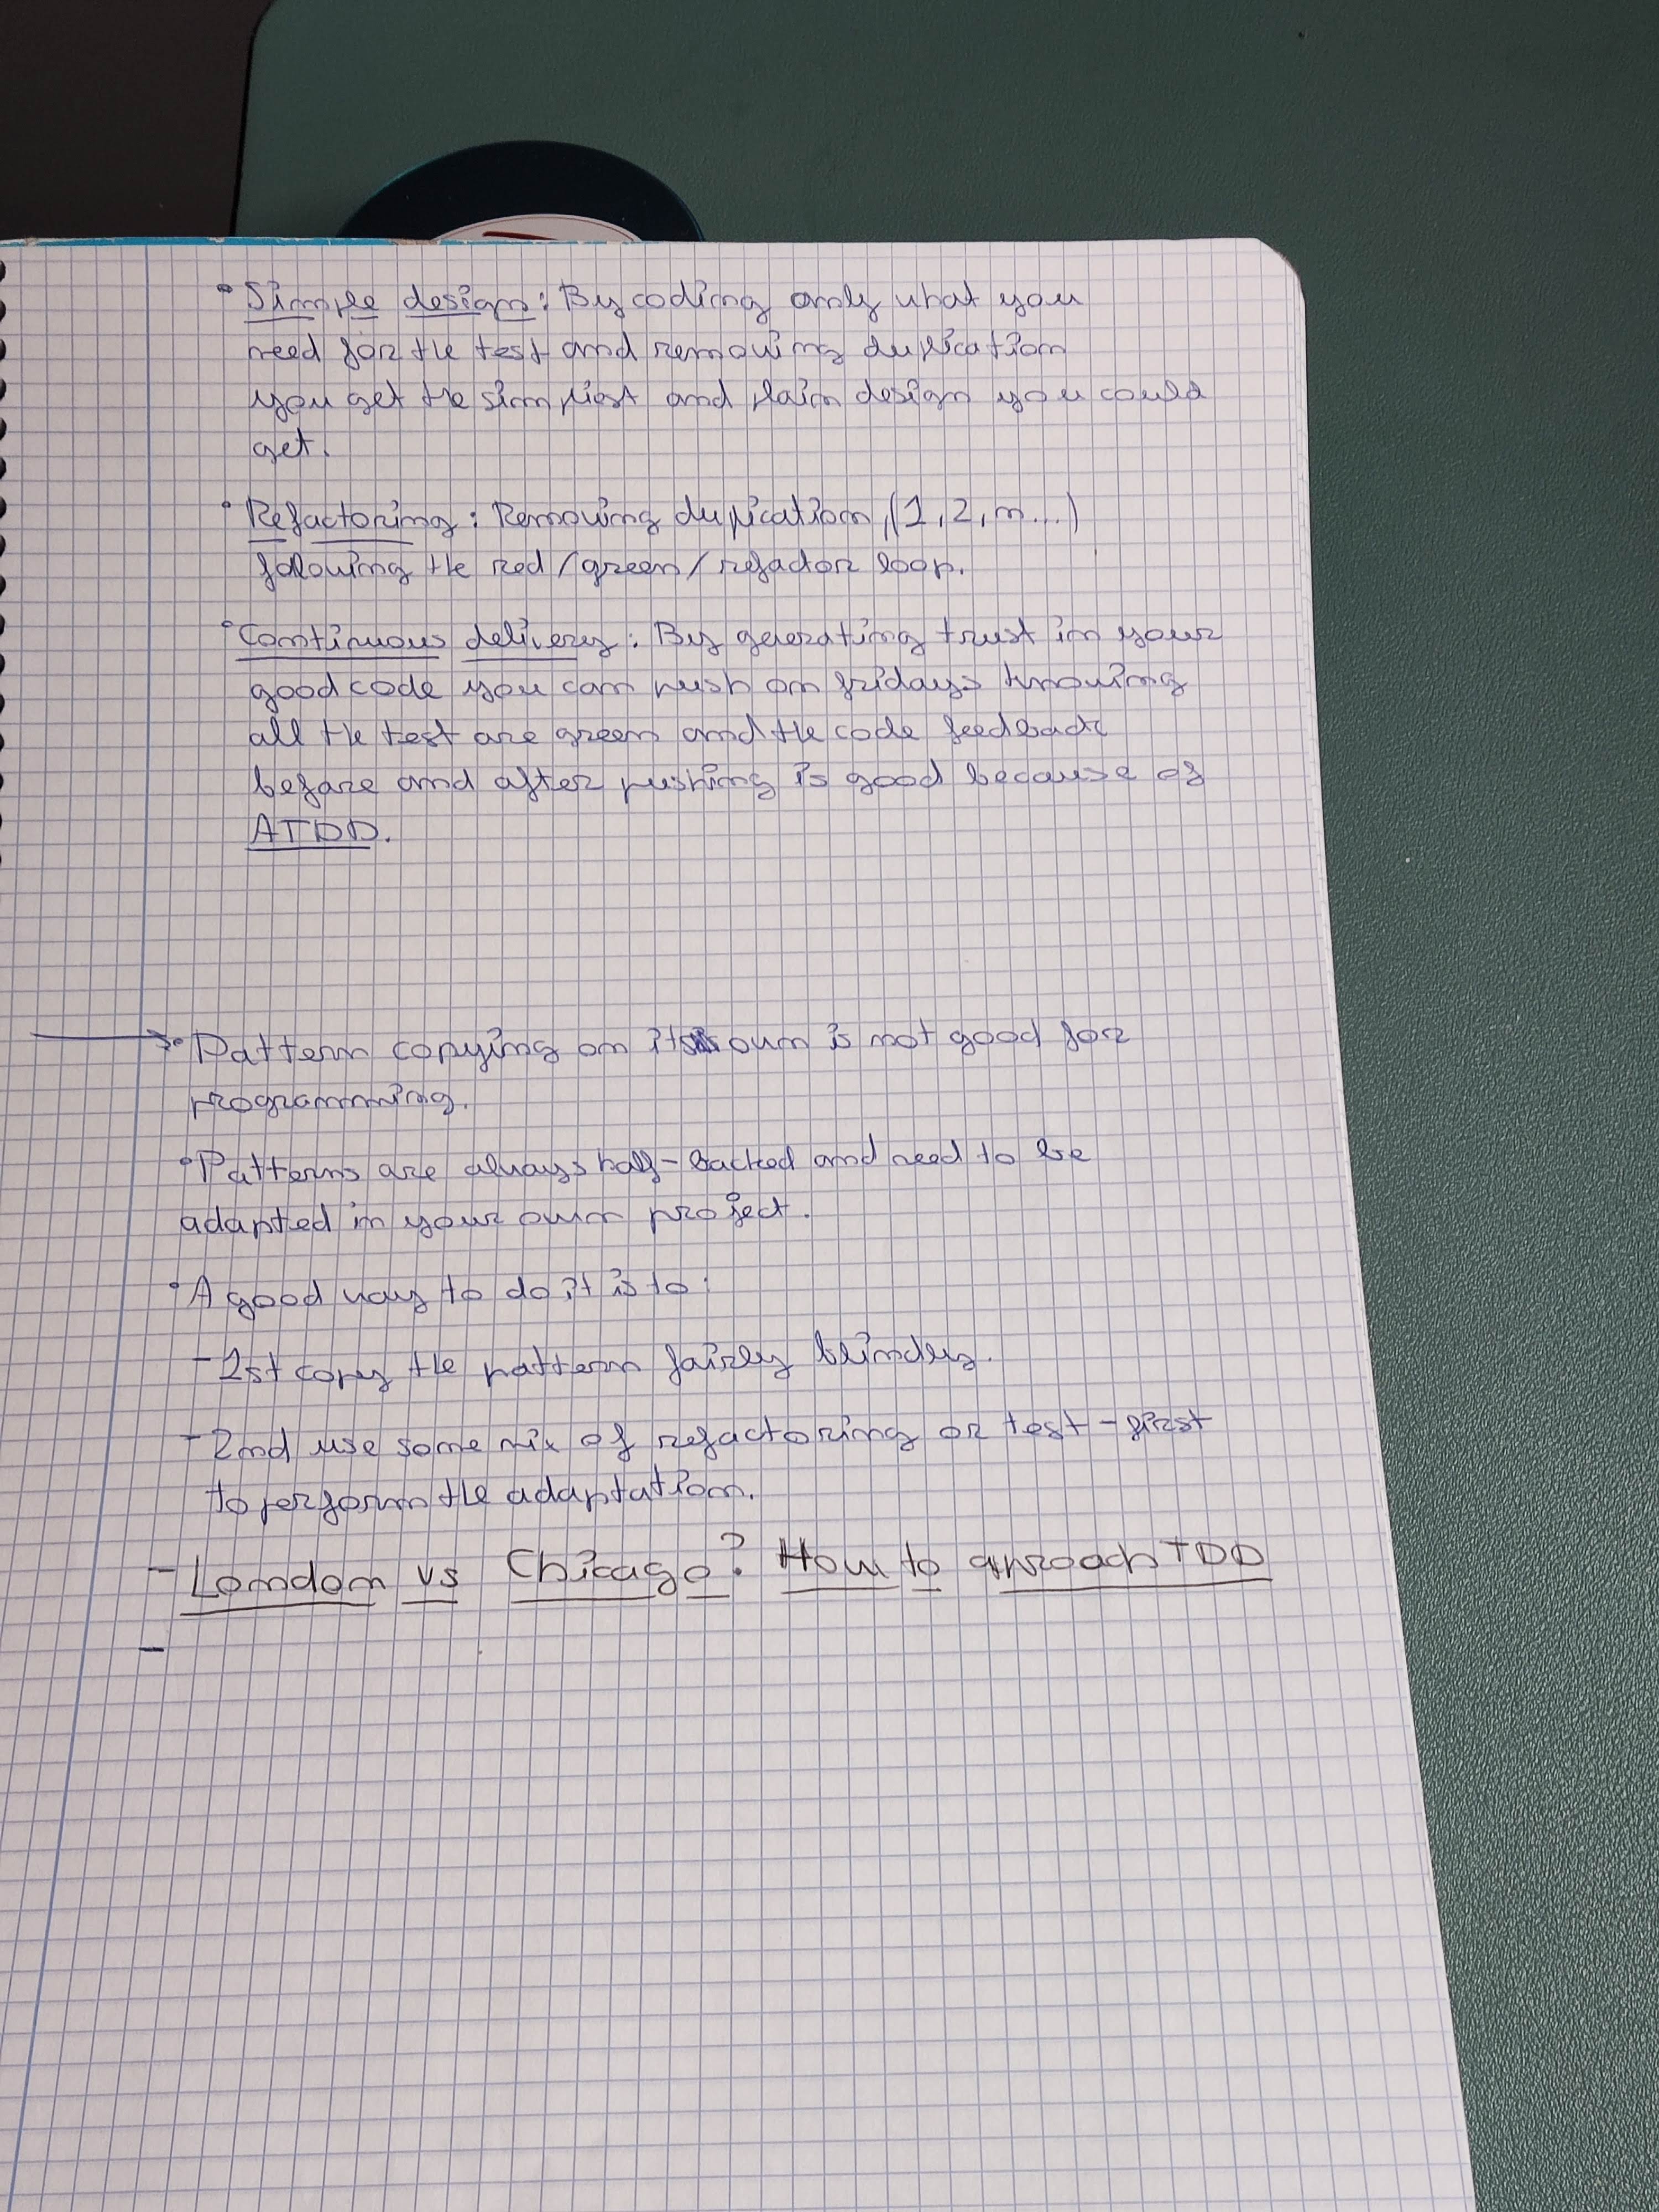 • Simple design: By coding only what you
need for the test and removing duplication
you get the simpliest and plain design you could
get.
• Refactoring: Removing duplication, (1, 2, n...)
following the red/green/refactor loop.
• Continuous delivery: By generating trust in your
good code you can push on fridays knowing
all the test are green and the code feedback
before and after pushing is good because of
ATDD.
→ • Pattern copying on its own is not good for
programming.
• Patterns are always half-backed and need to be
adapted in your own project.
• A good way to do it is to:
- 1st copy the pattern fairly blindly.
- 2nd use some mix of refactoring or test-first
to perform the adaptation.
- London vs Chicago? How to aproach TDD
-